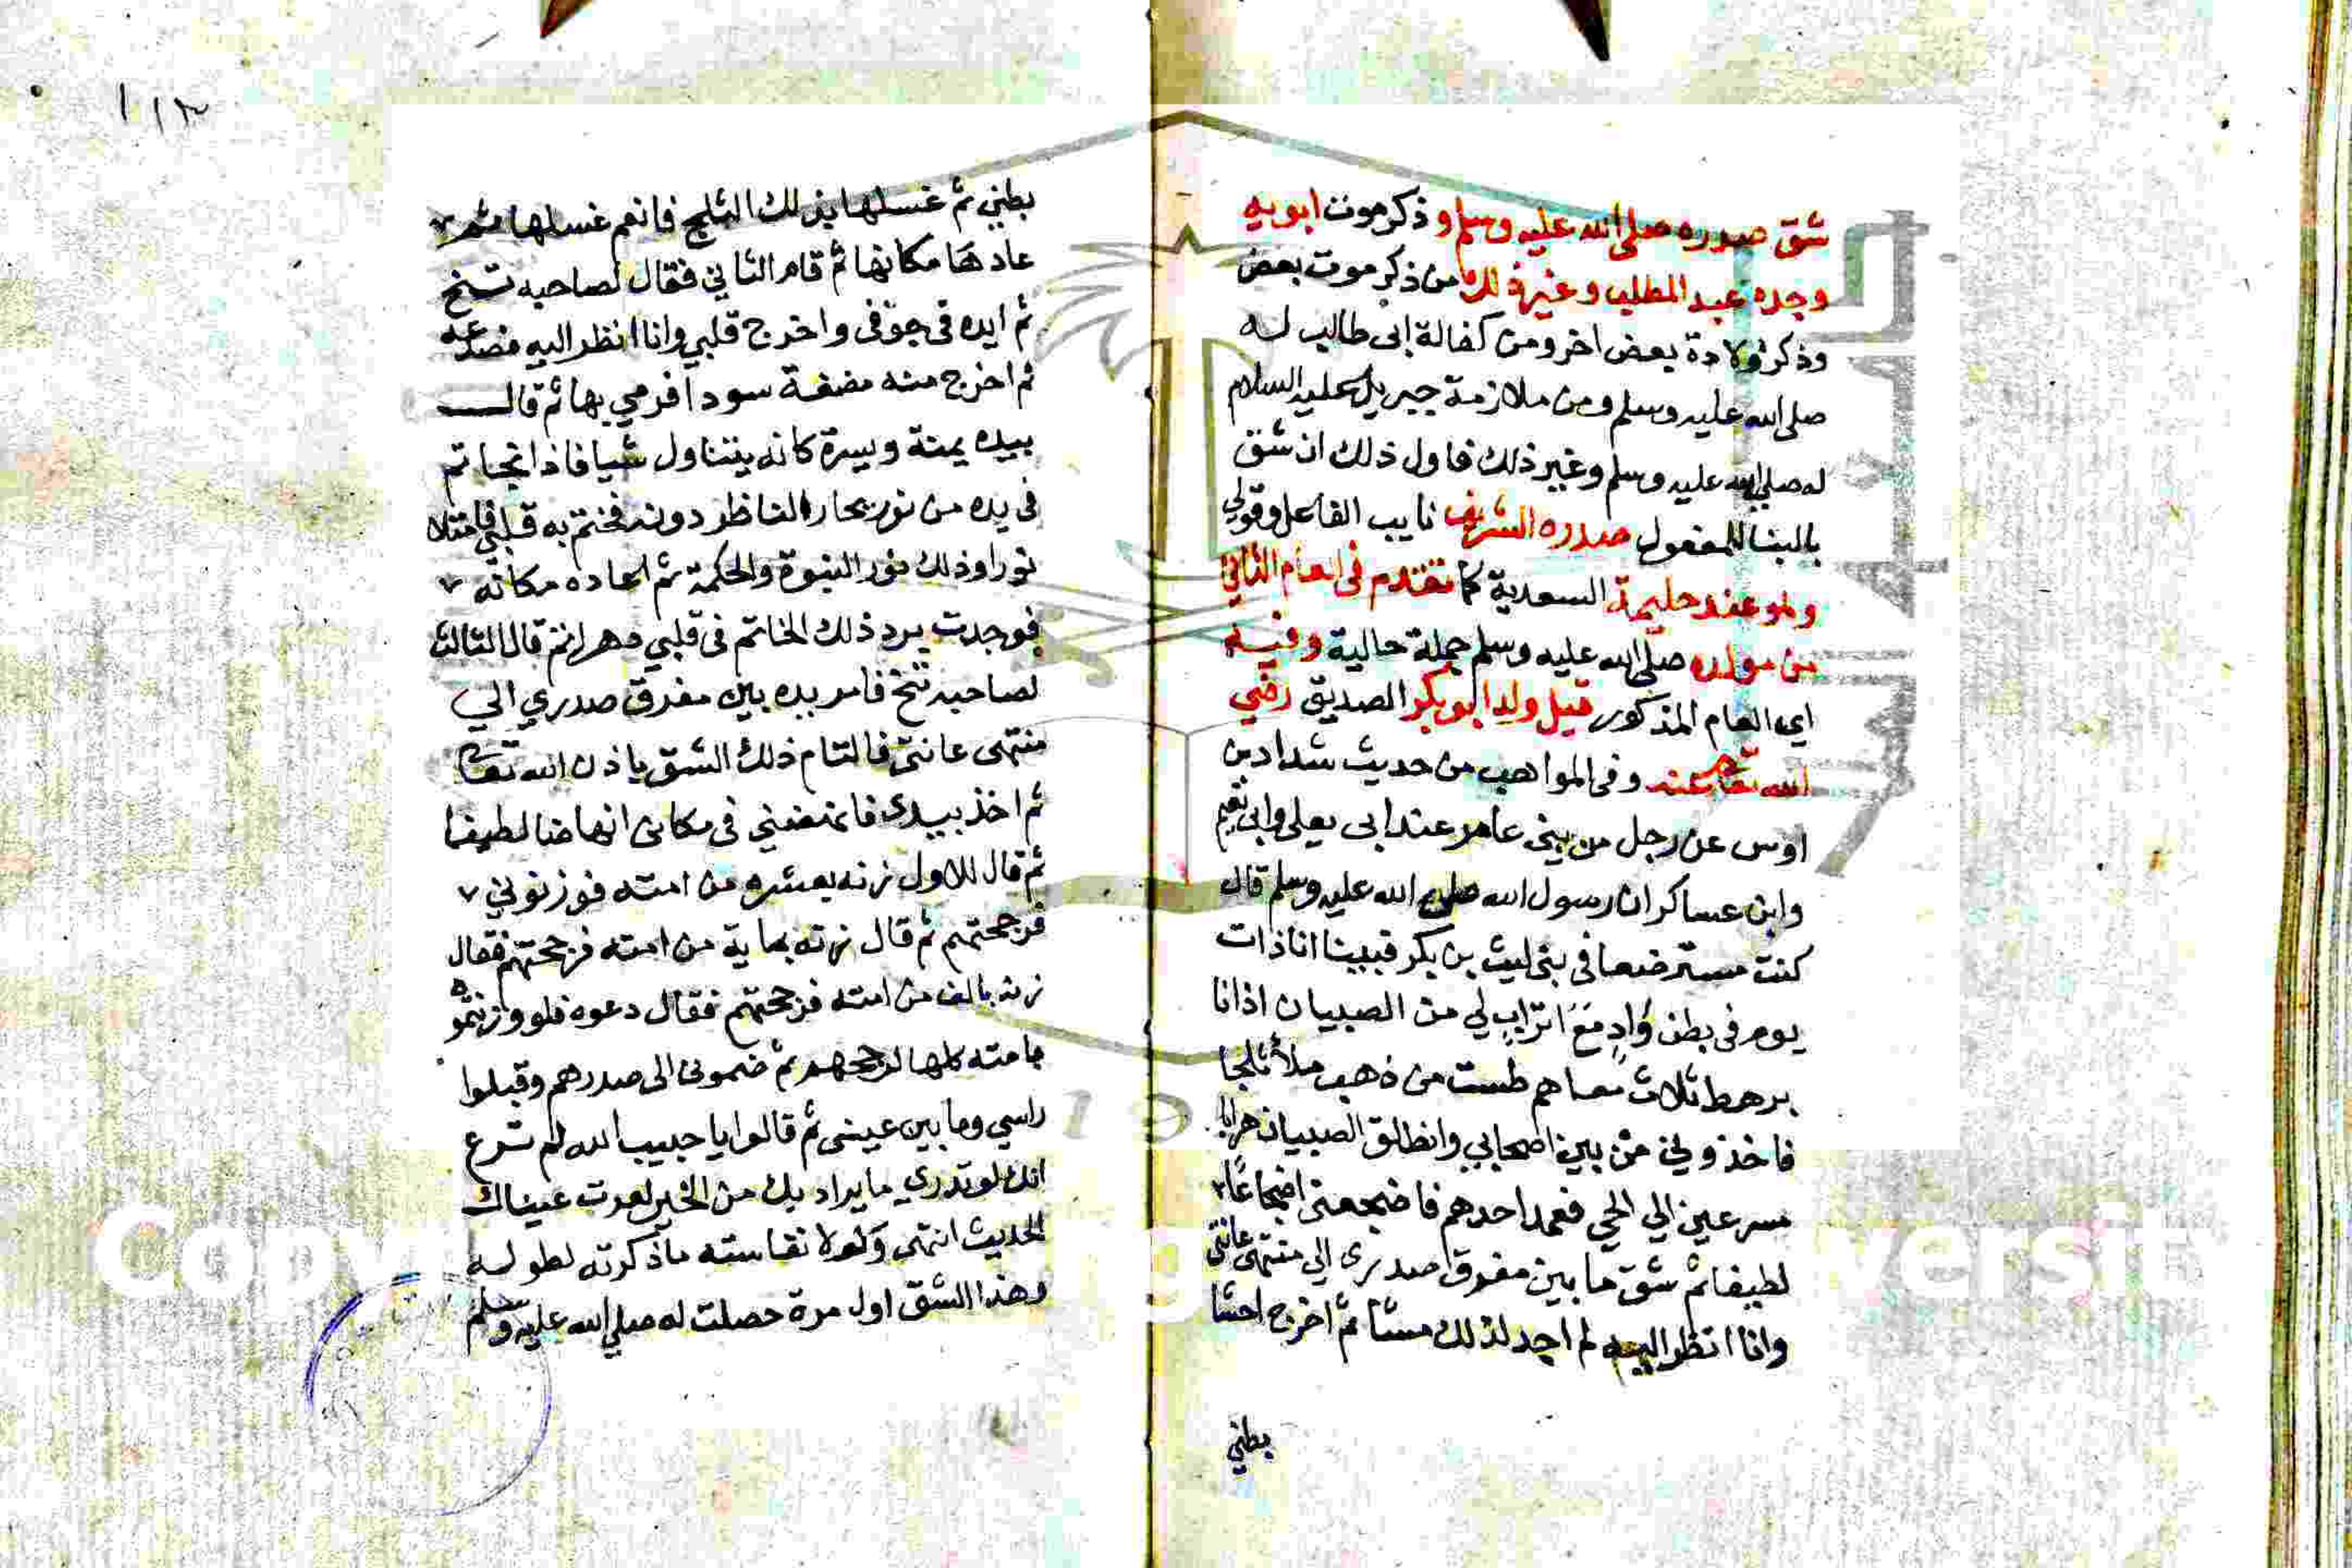 شق صدره صلى الله عليه وسلم وذكر موت ابويه
وجده عبد المطلب وغير ذلك من ذكر موت بعض
وذكر ولادة بعض اخر ومن كفالة ابى طالب له
صلى الله عليه وسلم ومن ملازمة جبريل عليه السلام
له صلى الله عليه وسلم وغير ذلك فاول ذلك ان شق
بالبنا للمفعول صدره الشريف نايب الفاعل وقولي
وهو عند حليمة السعدية كما تقدم فى العام الثاني
من مولده صلى الله عليه وسلم جملة حالية وفيه
اي العام المذكور قيل ولد ابو بكر الصديق رضي
الله تعالى عنه وفى المواهب من حديث شداد بن
اوس عن رجل من بنى عامر عند ابى يعلى وابى نعيم
وابن عساكر ان رسول الله صلى الله عليه وسلم قال
كنت مسترضعا فى بنى ليث بن بكر فبينا انا ذات
يوم فى بطن وَادٍ مَعَ اتراب لي من الصبيان اذ انا
برهط ثلاث معاهم طست من ذهب ملأ ثلجا
فاخذوني من بين اصحابي وانطلق الصبيان هرابا
مسرعين الي الحي فعمد احدهم فاضجعنى اضجاعًا
لطيفا ثم شق ما بين مفرق صدرى الي منتهى عانتى
وانا انظر اليه لم اجد لذلك مسا ثم اخرج احشا
بطني
١١٣
بطني ثم غسلها بذلك الثلج فانعم غسلها ثم
عادها مكانها ثم قام الثاني فقال لصاحبه تنح
ثم ايده فى جوفى واخرج قلبي وانا انظر اليه فصدعه
ثم اخرج منه مضغة سودا فرمي بها ثم قال
بيده يمنة ويسرة كانه يتناول شيا فاذا بخاتم
فى يده من نور يحار الناظر دونه فختم به قلبي فامتلا
نورا وذلك نور النبوة والحكمة ثم اعاده مكانه
فوجدت برد ذلك الخاتم فى قلبي دهرا ثم قال الثالث
لصاحبه تنح فامر يده بين مفرق صدري الي
منتهى عانتى فالتام ذلك الشق باذن الله تعالى
ثم اخذ بيدى فانهضني فى مكانى انهاضا لطيفا
ثم قال للاول زنه بعشرة من امته فوزنوني
فرجحتهم ثم قال زنه بماية من امته فرجحتهم فقال
زنه بالف من امته فرجحتهم فقال دعوه فلو وزنتموه
بامته كلها لرجحهم ثم ضمونى الى صدرهم وقبلوا
راسي وما بين عينى ثم قالوا يا حبيب الله لم ترع
انك لو تدري ما يراد بك من الخير لقرت عيناك
الحديث انتهى وَلولا نفاسته ما ذكرته لطوله
وهذا الشق اول مرة حصلت له صلى الله عليه وسلم